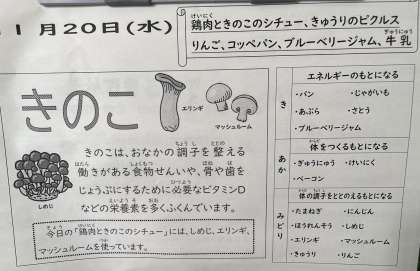 1月20日(水)
鶏肉ときのこのシチュー、きゅうりのピクルス
りんご、コッペパン、ブルーベリージャム、牛乳
きのこ
エリンギ
マッシュルーム
しめじ
きのこは、おなかの調子を整える
働きがある食物せんいや、骨や歯を
じょうぶにするために必要なビタミンD
などの栄養素を多くふくんでいます。
今日の「鶏肉ときのこのシチュー」には、しめじ、エリンギ、
マッシュルームを使っています。
エネルギーのもとになる
き
・パン ・じゃがいも
・あぶら ・さとう
・ブルーベリージャム
体をつくるもとになる
あか
・ぎゅうにゅう ・けいにく
・ベーコン
体の調子をととのえるもとになる
みどり
・たまねぎ ・にんじん
・ほうれんそう ・しめじ
・エリンギ ・マッシュルーム
・きゅうり ・りんご